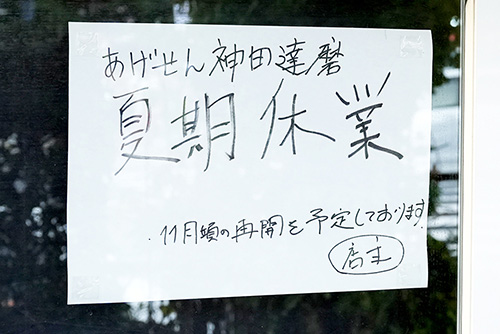 あげせん神田達磨
夏期休業
・11月頃の再開を予定しております.
店主